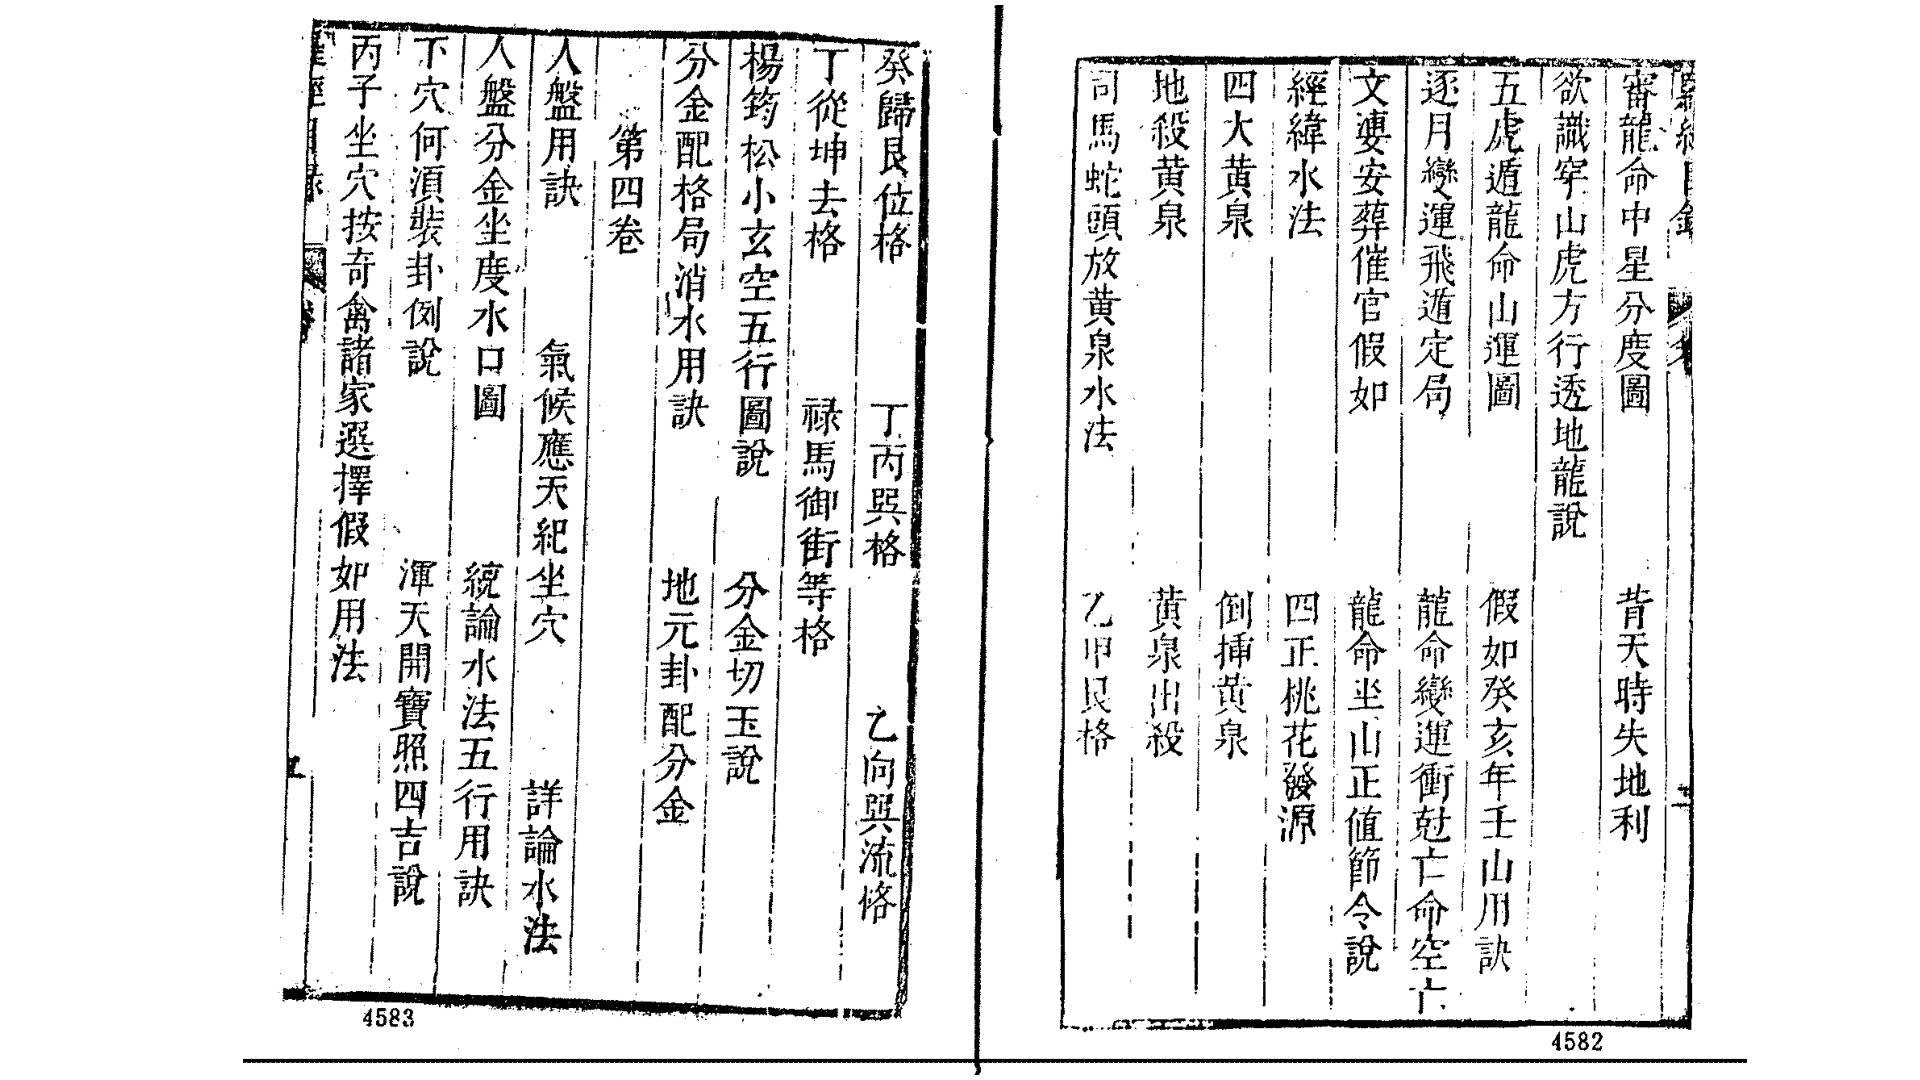 審龍命中星分度圖　背天時失地利
欲識穿山虎方行透地龍說
五虎遁龍命山運圖　假如癸亥年壬山用訣
逐月變運飛遁定局　龍命變運衝尅亡命空亡
文婁安葬催官假如　龍命坐山正值節令說
經緯水法　四正桃花發源
四大黄泉　倒挿黄泉
地殺黄泉　黄泉出殺
司馬蛇頭放黄泉水法　乙甲艮格
4582
癸歸艮位格　丁丙巽格　乙向巽流格
丁從坤去格　禄馬御街等格
楊筠松小玄空五行圖說　分金切玉說
分金配格局消水用訣　地元卦配分金
第四卷
人盤用訣　氣候應天紀坐穴　詳論水法
人盤分金坐度水口圖　統論水法五行用訣
下穴何須裝卦例說　渾天開寶照四吉說
丙子坐穴按奇禽諸家選擇假如用法
4583